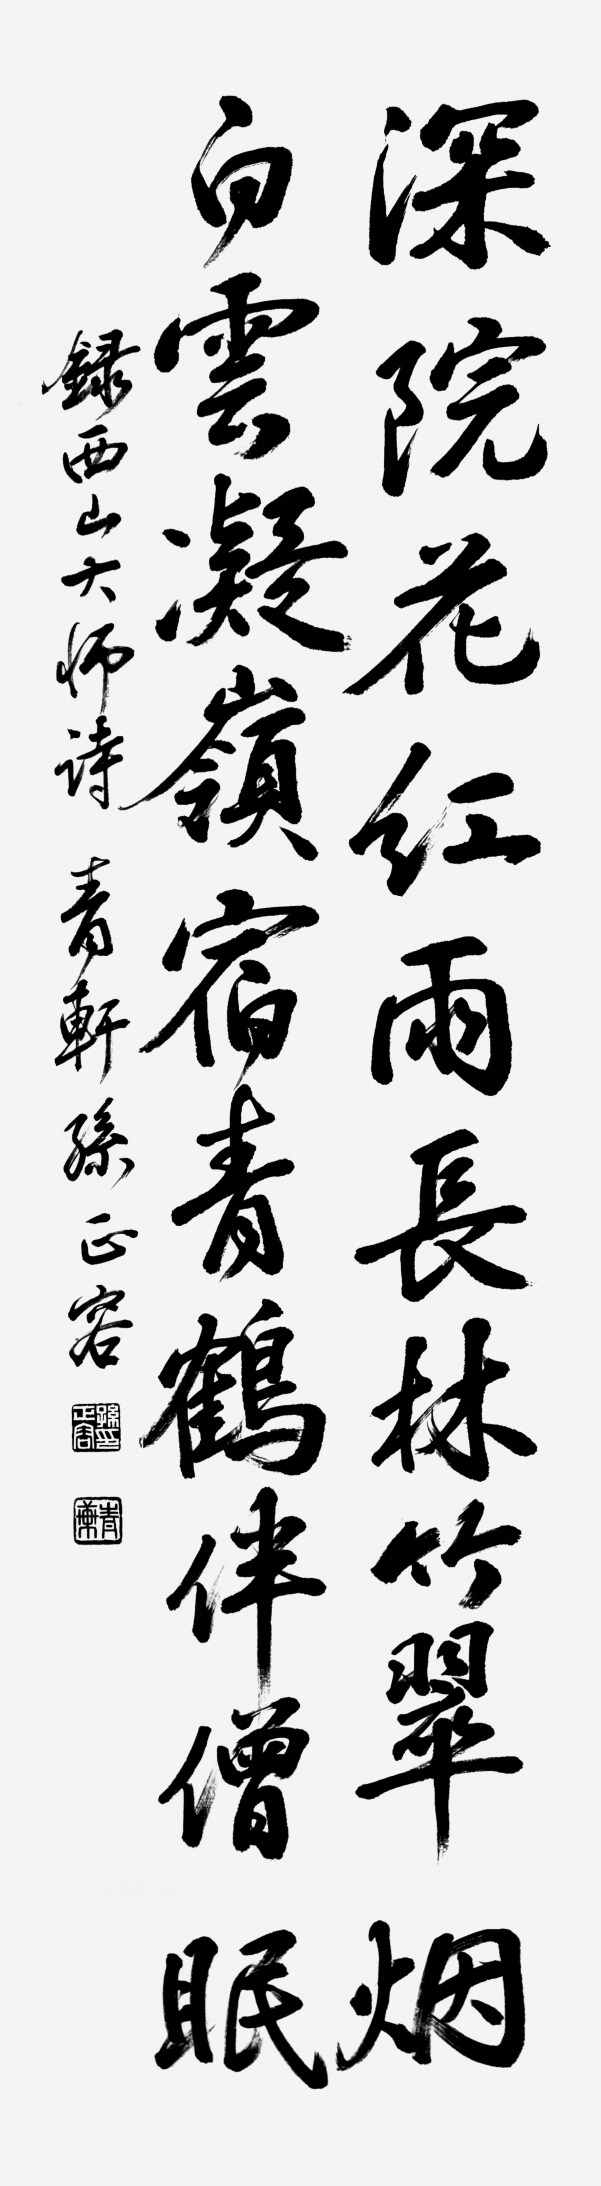 深院花红雨長林竹翠烟
白雲凝嶺宿青鶴伴僧眠
録西山大师诗 青軒孫正容
孫正容印
青軒